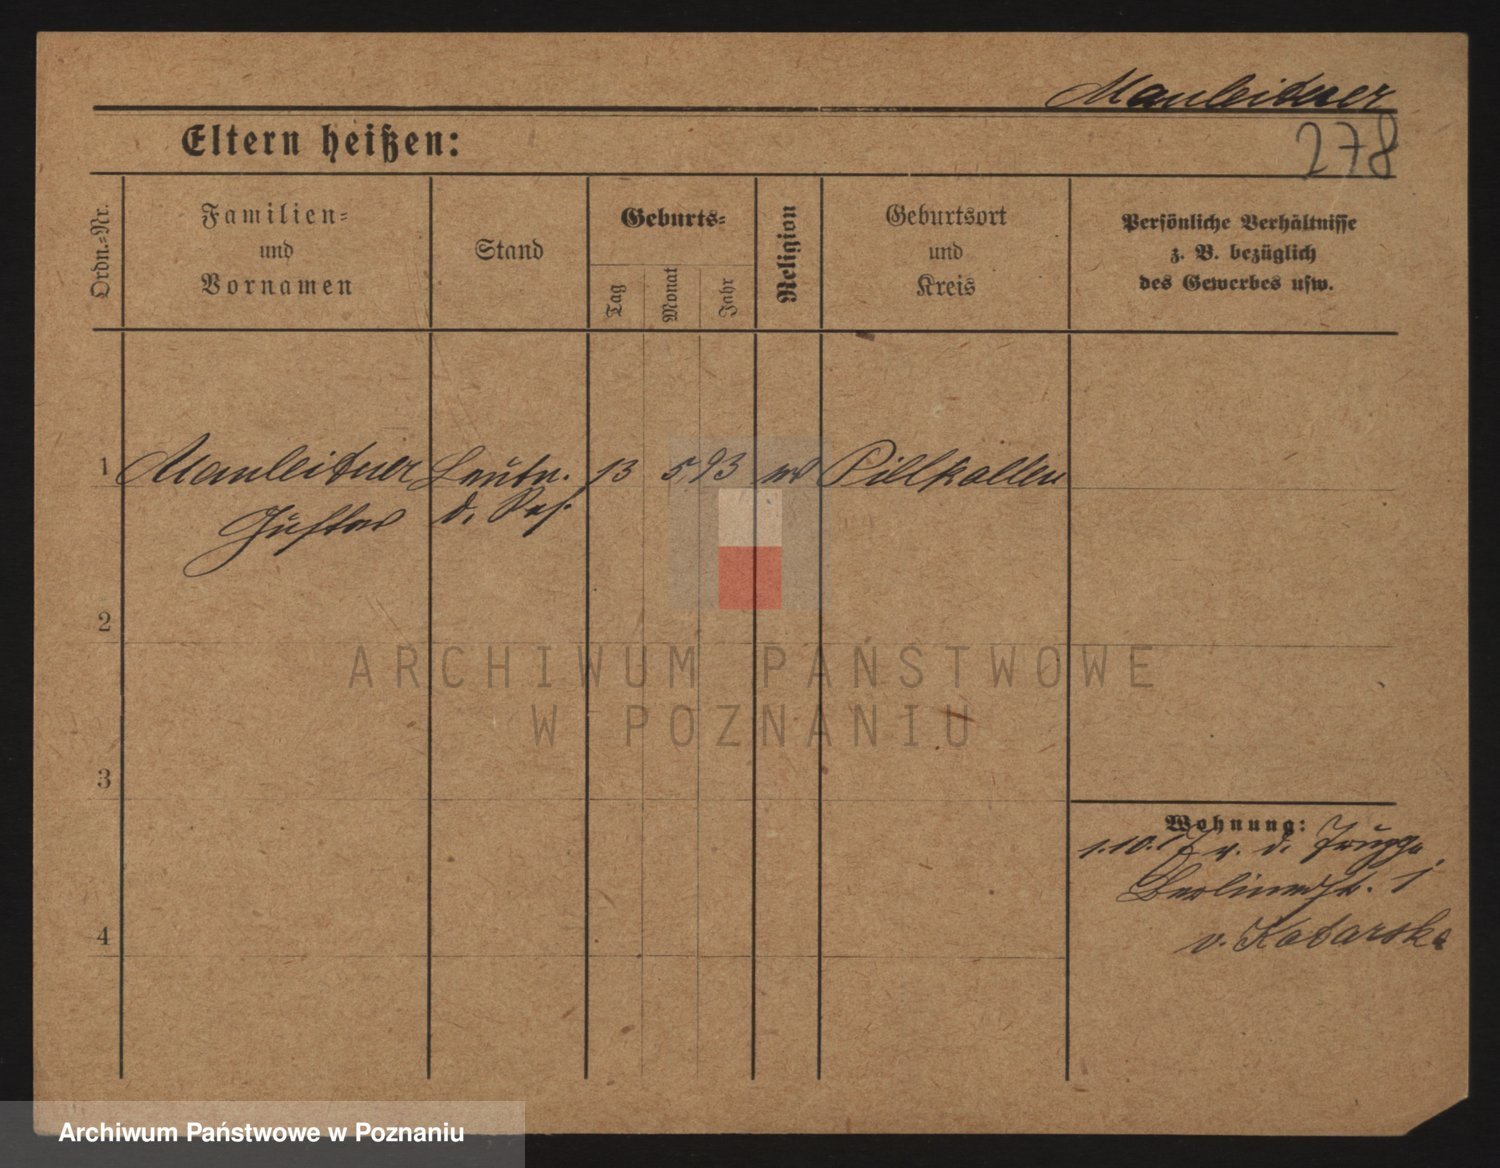 Mauleitner
278
Eltern heißen:
Ordn.=Nr.
Familien=
und
Vornamen
Stand
Geburts=
Tag
Monat
Jahr
Religion
Geburtsort
und
Kreis
Persönliche Verhältnisse
z. B. bezüglich
des Gewerbes usw.
1 Mauleitner Leutn. 13 5. 93 Pillkallen
Gustav d. Res.
2
3
4
Wohnung:
1.10.17 v. d. Truppe
Berlinerstr. 1
v. Kotarska
ARCHIWUM PAŃSTWOWE
W POZNANIU
Archiwum Państwowe w Poznaniu